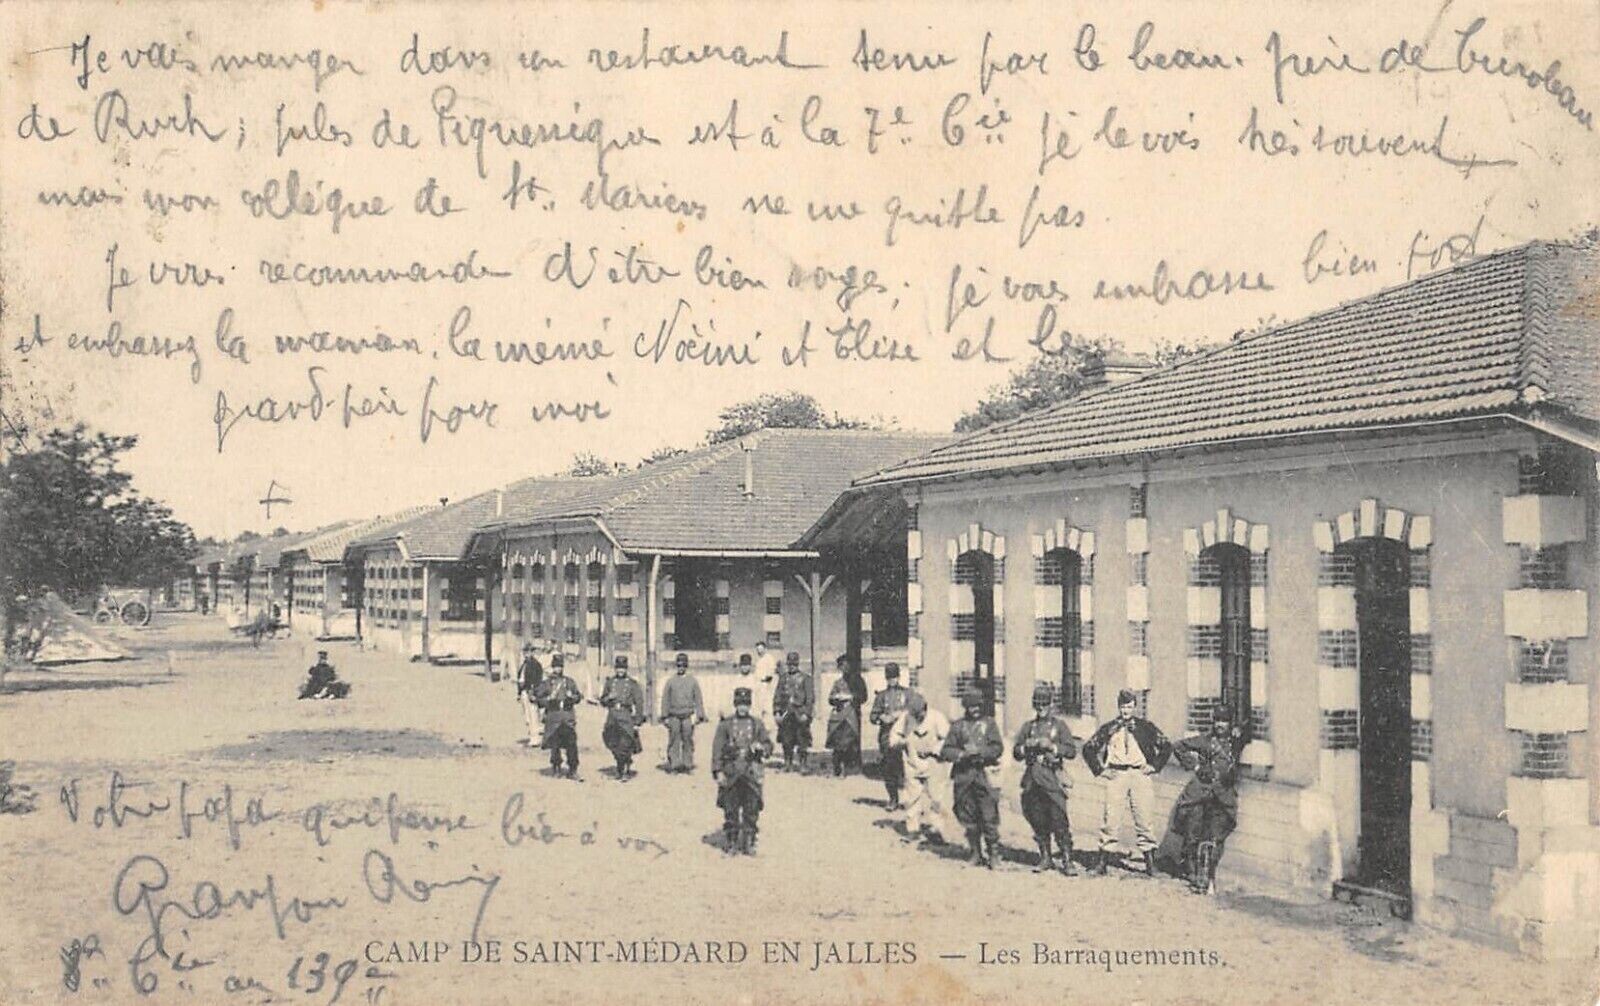 Je vais manger dans un restaurant tenu par le beau. père de
de Ruch; Jules de est à la 7e Cie je le vois très souvent
mais mon collégue de St. Mariens ne me quitte pas.
Je vous recommande d'être bien sages, je vous embrasse bien fort
et embrassez la maman, la mémé et Elise et le
grand-père pour moi
Votre papa qui pense bien à vous
8e Cie au 139e
CAMP DE SAINT-MÉDARD EN JALLES — Les Barraquements.